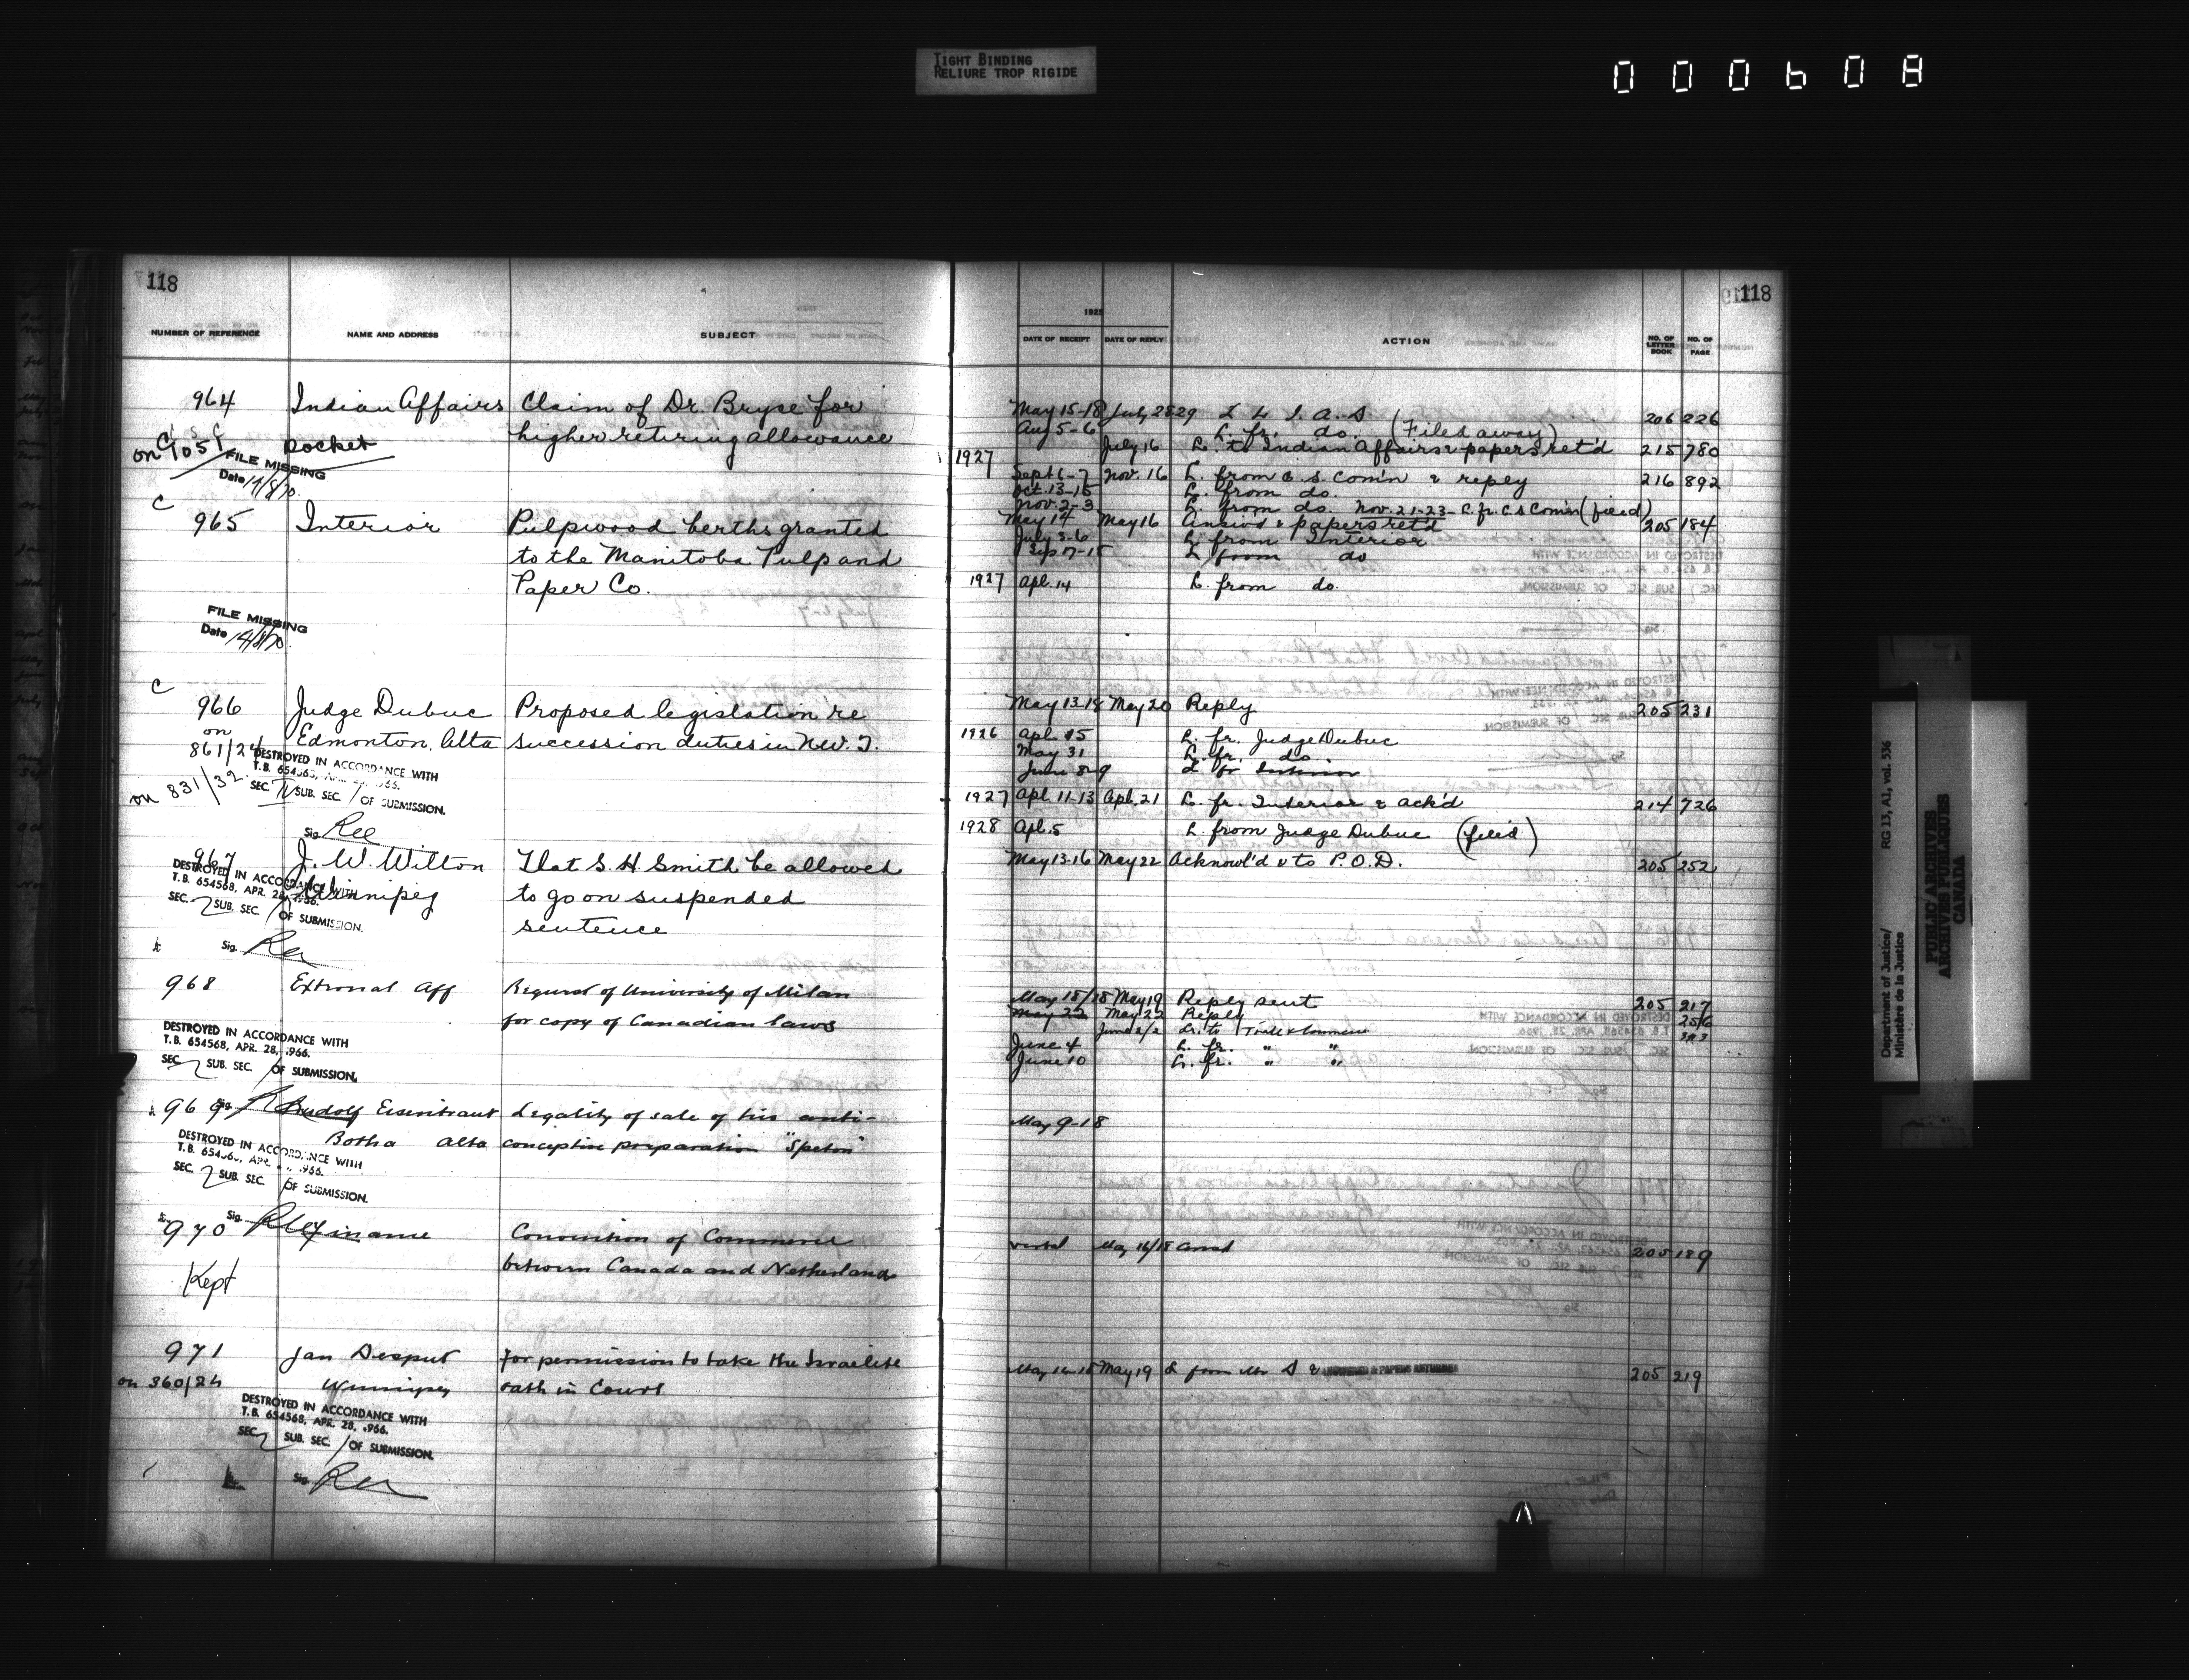 TIGHT BINDING
RELIURE TROP RIGIDE
000608
118
NUMBER OF REFERENCE NAME AND ADDRESS SUBJECT
964 Indian Affairs Claim of Dr. Bryce for
on 1051 Docket higher retiring allowance
FILE MISSING
Date 14/8/70
C
965 Interior Pulpwood berths granted
to the Manitoba Pulp and
Paper Co.
FILE MISSING
Date 14/8/70
C
966 Judge Dubuc Proposed legislation re
on 861/24 Edmonton, Alta succession duties in N.W.T.
DESTROYED IN ACCORDANCE WITH
T.B. 654563, APR. 28, 1966.
on 831/32 SEC. IV SUB. SEC. / OF SUBMISSION.
Sig.
967 J. W. Wilton That S. H. Smith be allowed
DESTROYED IN ACCORDANCE WITH
T.B. 654568, APR. 28, 1966.
Winnipeg to go on suspended
SEC. 2 SUB. SEC. / OF SUBMISSION.
sentence
Sig.
968 External Aff Request of University of Milan
for copy of Canadian laws
DESTROYED IN ACCORDANCE WITH
T.B. 654568, APR. 28, 1966.
SEC. 2 SUB. SEC. / OF SUBMISSION.
969 Rudolf Eisentraut Legality of sale of his anti-
Botha Alta conceptive preparation "Speton"
DESTROYED IN ACCORDANCE WITH
T.B. 654568, APR. 28, 1966.
SEC. 2 SUB. SEC. / OF SUBMISSION.
Sig.
970 Finance Convention of Commerce
between Canada and Netherlands
Kept
971 Jan Desput For permission to take the Israelite
on 360/24 Winnipeg oath in Court
DESTROYED IN ACCORDANCE WITH
T.B. 654568, APR. 28, 1966.
SEC. 2 SUB. SEC. / OF SUBMISSION.
Sig.
118
1925
DATE OF RECEIPT DATE OF REPLY ACTION NO. OF LETTER BOOK NO. OF PAGE
May 15-18 July 28 29 L to I. A. D 206 226
Aug 5-6 L. fr. do. (Filed away)
July 16 L. to Indian Affairs & papers ret'd 215 780
1927 Sept 6-7 Nov. 16 L. from C. S. Com'n & reply 216 892
Oct. 13-15 L. from do.
Nov. 2-3 L. from do. Nov. 21-23 - L. fr. C S Com'n (filed)
May 14 May 16 Answ'd & papers ret'd 205 184
July 3-6 L from Interior
Sep 17-15 L from do
1927 Apl. 14 L. from do.
May 13-18 May 20 Reply 205 231
1926 Apl. 15 L. fr. Judge Dubuc
May 31 L. fr. do.
June 8-9 L fr Interior
1927 Apl. 11-13 Apl. 21 L. fr. Interior & ack'd 214 726
1928 Apl. 5 L. from Judge Dubuc (filed)
May 13-16 May 22 Acknowl'd & to P.O.D. 205 252
May 18/18 May 19 Reply sent 205 217
May 22 May 22 Reply 256
June 2/2 Lr. to Trade & Commerce
June 4 L. fr. " "
June 10 L. fr. " "
May 9-18
verbal May 16/18 Answd 205 189
May 16-18 May 19 L from Mr D & ANSWERED & PAPERS RETURNED 205 219
Department of Justice/
Ministère de la Justice
RG 13, A1, vol. 536
PUBLIC ARCHIVES
ARCHIVES PUBLIQUES
CANADA